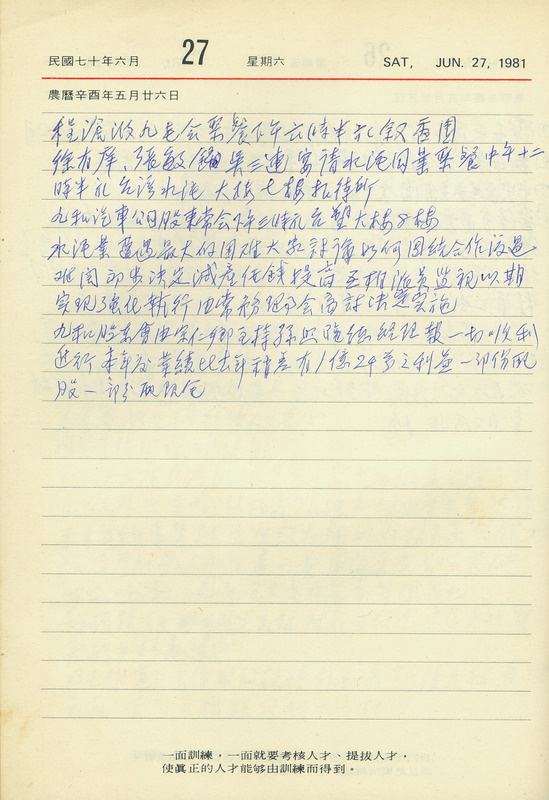 民國七十年六月 27 星期六 SAT, JUN. 27, 1981
農曆辛酉年五月廿六日
程滄波九老会聚餐下午六時半於敘香園
徐有庠、張敏鈺、吳三連宴請水泥同業聚餐中午十二
時半於台灣水泥大樓七樓招待所
九和汽車公司股東常会下午三時於台塑大樓8樓
水泥業遭遇最大的困难大家討論如何團結合作渡過
难関初步決定減產 互相派員监視以期
实现強化執行由常務理事会商討決定实施
九和股东會由宋仁卿主持 經理報一切順利
進行本年度業績比去年稍差有1億24万之利益一部份配
股一部分配現金
一面訓練，一面就要考核人才、提拔人才，
使眞正的人才能够由訓練而得到。